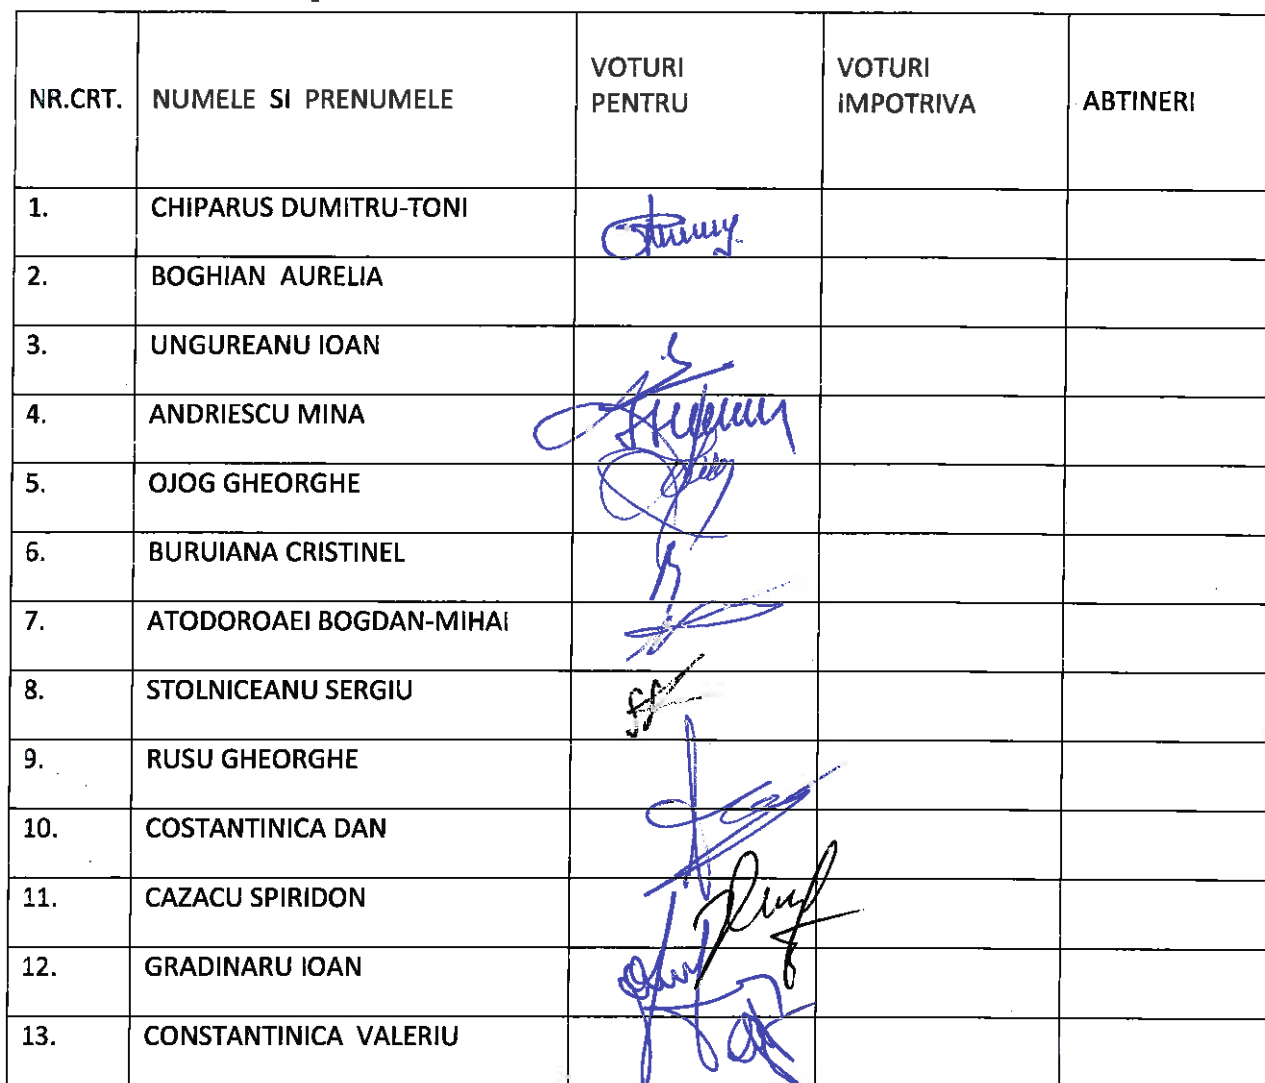 NR.CRT. NUMELE SI PRENUMELE VOTURI PENTRU VOTURI IMPOTRIVA ABTINERI
1. CHIPARUS DUMITRU-TONI
2. BOGHIAN AURELIA
3. UNGUREANU IOAN
4. ANDRIESCU MINA
5. OJOG GHEORGHE
6. BURUIANA CRISTINEL
7. ATODOROAEI BOGDAN-MIHAI
8. STOLNICEANU SERGIU
9. RUSU GHEORGHE
10. COSTANTINICA DAN
11. CAZACU SPIRIDON
12. GRADINARU IOAN
13. CONSTANTINICA VALERIU